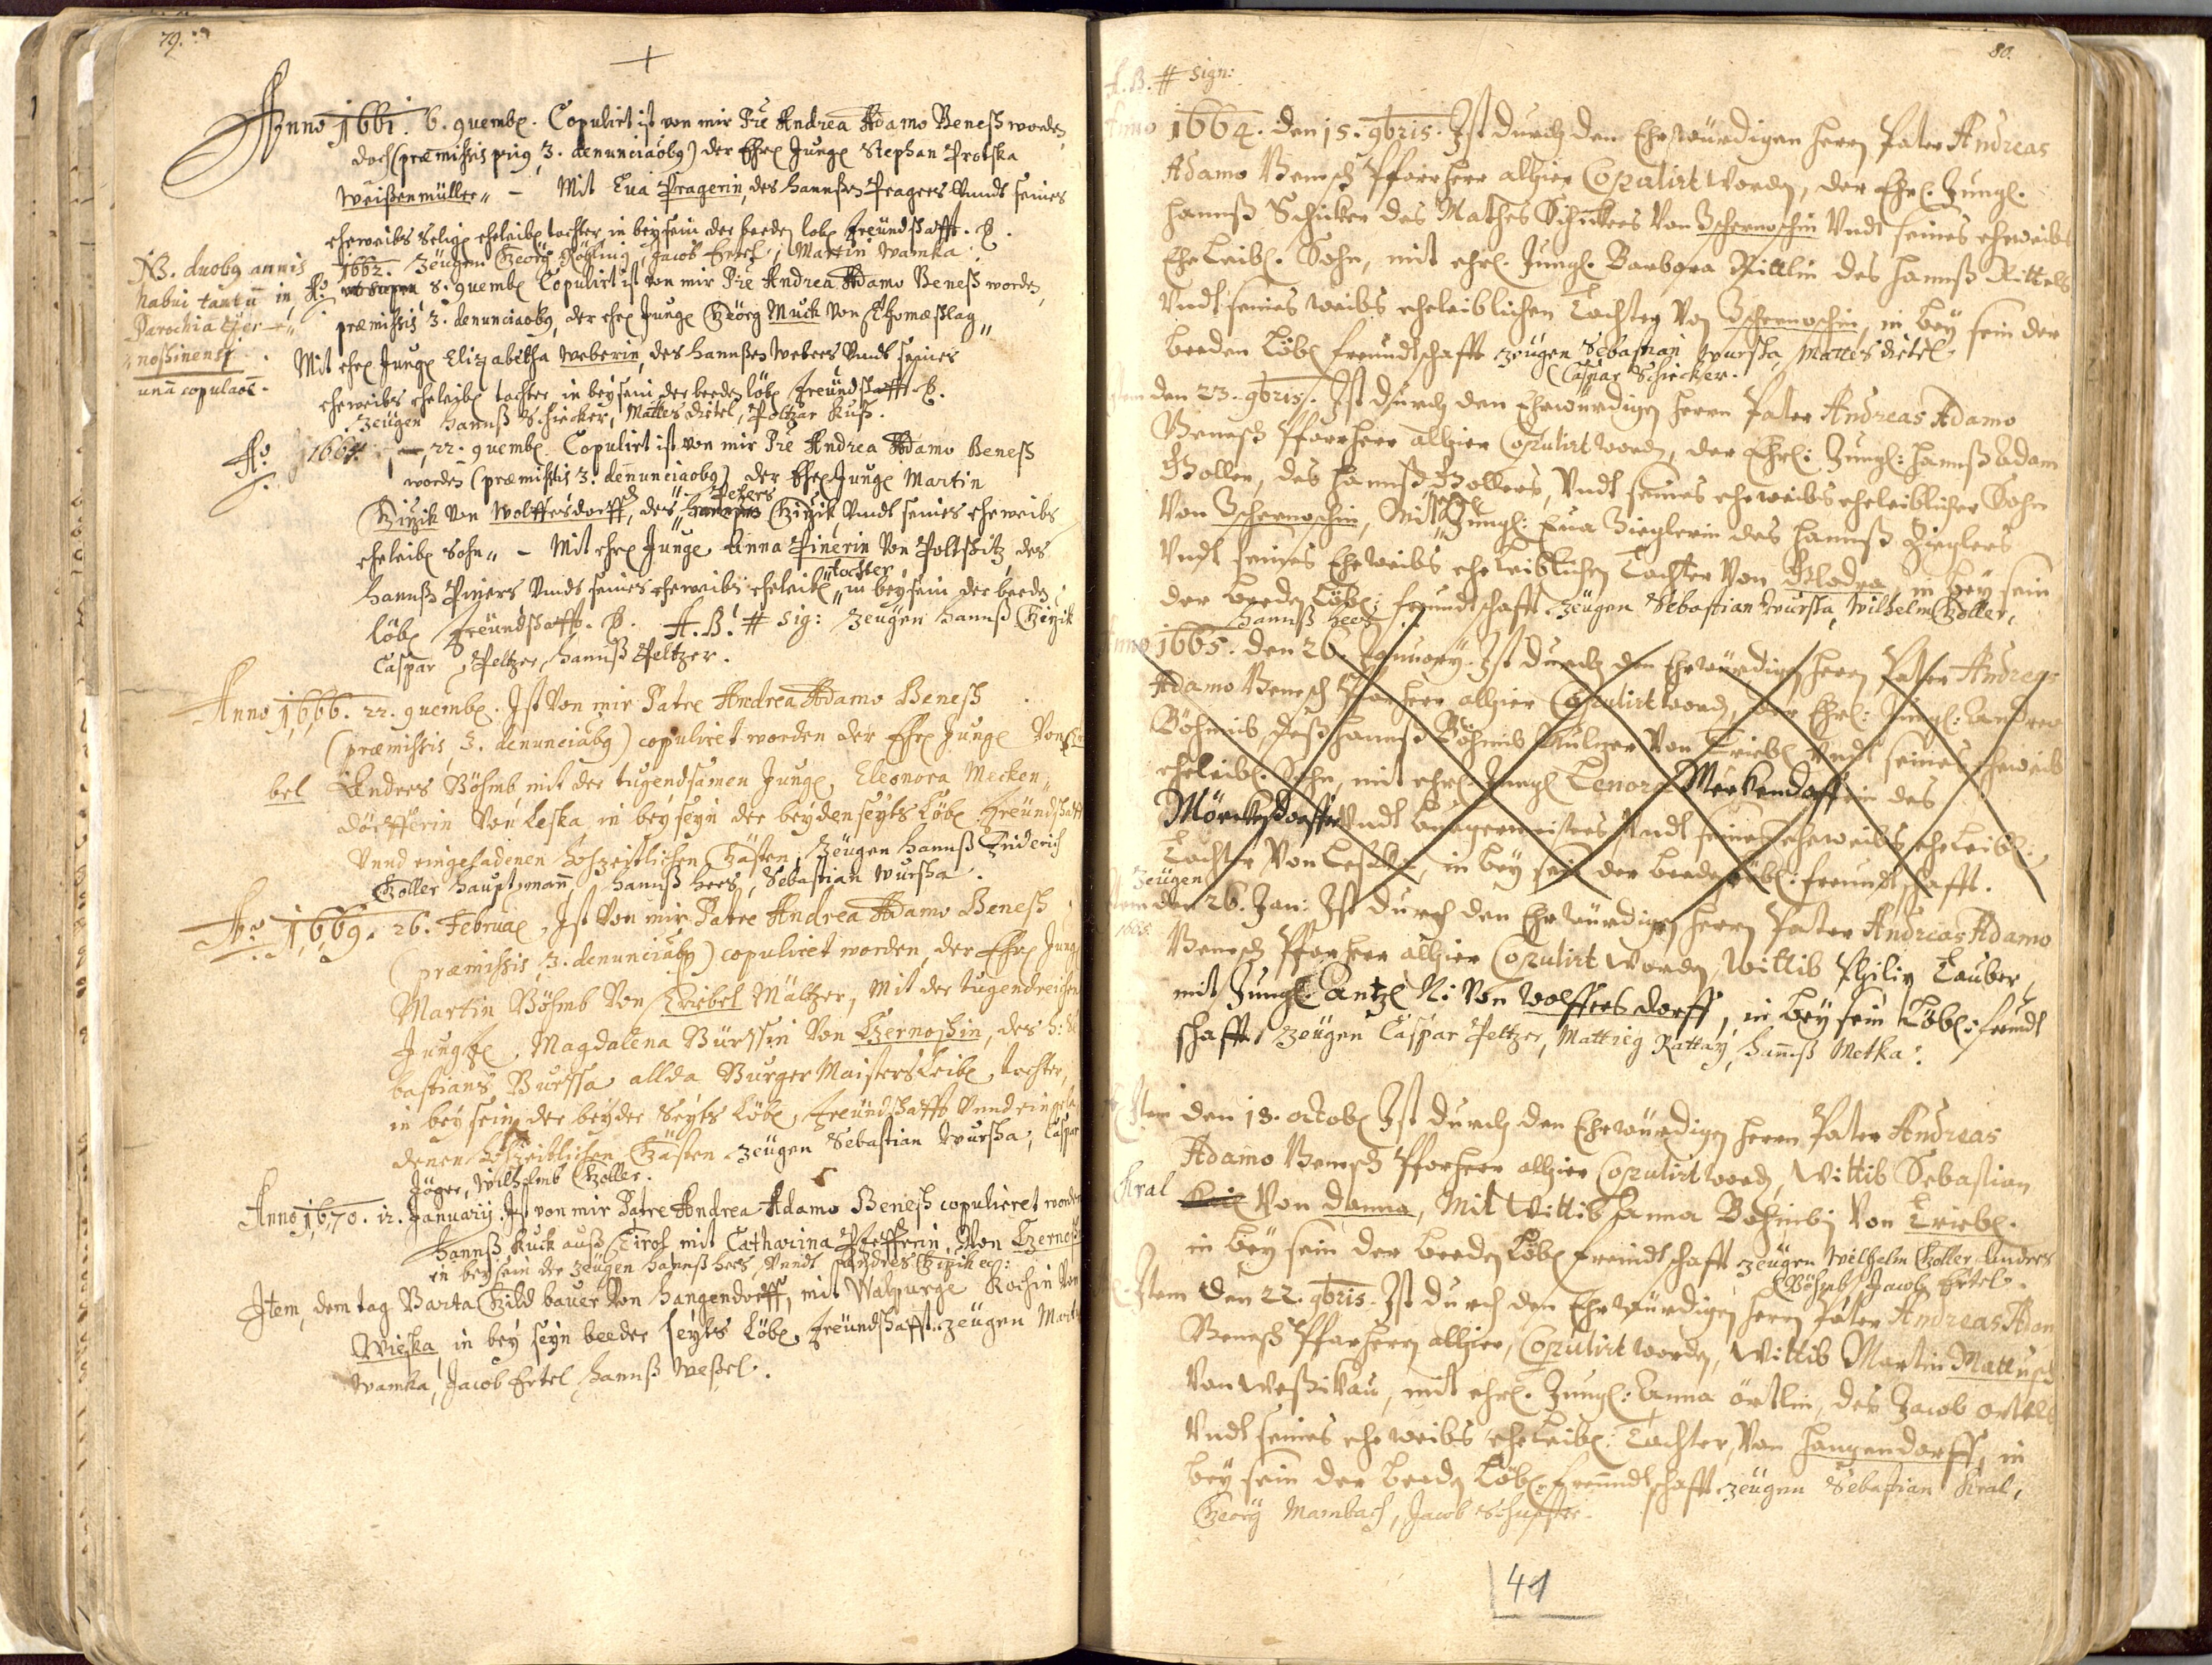 79.
Anno 1661. 6. 9uemb. Copulirt ist von mir Pre Andrea Adamo Beneß worden,
doch (præmissis prig 3. denunciaõbg) der Ehrl Jungl Stephan Protska
Weißenmüller„ – Mit Eua Pragerin, des hannßen Pragers Vnndt seines
eheweibs Selige eheleibl tochter in beysein der beeden lobl freündtschafft.
1662. Zeügen Georg Röhling, Jacob Ertel, Martin Wamka.
NB. duobg annis
habui tantũ in
Parochia tzer„
„noshinensi
unã copulaõẽ.
Ao. ut supra 8. 9uemb Copulirt ist von mir Pre Andrea Adamo Beneß worden,
præmissis 3. denunciaobg, der ehrl Jungl Geörg Muck von Thomæßlag„
Mit ehrl Jungl Elizabetha Weberin, des hannßen Webers Vnndt seines
eheweibs eheleibl tochter in beysein der beeden löbl freündtschafft.
Zeügen hannß Schicker, Mattes dietel, Poltzar Kuß.
Ao 1664. 22. 9uemb. Copulirt ist von mir Pre Andrea Adamo Beneß
worden (præmissis 3. denunciaobg) der Ehrl Jungl Martin
Czizik von Wolffersdorff, des Peters Czizik Vnndt seines eheweibs
eheleibl Sohn„ – Mit ehrl Jungl Anna Pinerin Von Poltschitz, des
hannß Piners Vnndt seines eheweibs eheleibl „tochter„ in beysein der beeden
löbl freündtschafft. A.B. # sig: Zeügen hannß Czizik
Caspar Peltzer, hannß Peltzer.
Anno 1666. 22. 9uemb. Ist Von mir Patre Andrea Adamo Beneß
(præmissis 3. denunciabg) copuliret worden der Ehrl Jungl Von
bel Andres Böhmb mit der tugendsamen Jungl Eleonora Mecken„
dörfferin Von Leska in beyseyn der beydenseyts Löbl freündtschafft
Vnnd eingeladenen hochzeitlichen Gästen, Zeügen hannß Friderich
Zoller hauptmañ, hannß hees, Sebastian Wursha.
Ao 1669. 26. Februa, Ist Von mir Patre Andrea Adamo Beneß
(præmissis 3. denunciabg) copuliret worden, der Ehrl Jungl
Martin Böhmb Von Triebel Mältzer, Mit der tugendreichen
Jungfl, Magdalena Burssin Von Tzernoshin, des h: Se
bastians Burssa allda BurgerMaisters Leibl tochter,
in beysein der beyder Seyts Löbl freündtschafft Vnnd eingela
denen hochzeitlichen Gästen Zeügen Sebastian Wursha, Caspar
Jäger, Wilhelmb Zoller.
Anno 1670. 12. Januarij Ist von mir Patre Andrea Adamo Beneß copulieret worden
hannß Kuck auß Tirol mit Catharina Pfefferin Von Tzernoshin
in beysein der Zeügen hannß hees, Vnndt Andres Czizik etc:
Item, dem tag Barta Hild bauer von hangendorff, mit Walpurge Kochin Von
Wieska in bey seyn beeder seyts Löbl freündtschafft. Zeügen Martin
Wamka, Jacob Ertel hannß Weßel.
80.
A.B. # sign:
Anno 1664. den 15. 9bris. Ist durch den Ehrwürdigen herrn Pater Andreas
Adamo Benesch Pfarrherr alhier Copulirt Worden, der Ehrl. Jungl.
hannß Schicker des Mathes Schickers Von Zschernoschin Vndt seines eheweibs
EheLeibl. Sohn, mit ehrl. Jungl. Barbara Rittlin des hannß Rittels
Vndt seines weibs eheleiblichen Tochter Von Zschernoschin, in bey sein der
beeden Löbl freundtschafft Zeügen Sebastian Wursha, Mattes dietel,
Caspar Schicker.
Item den 23. 9bris. Ist durch den Ehrwürdigen herrn Pater Andreas Adamo
Benesch Pfarrherr alhier Copulirt word, der Ehrl: Jungl: hannß Adam
Zoller, des hannß Zollers, Vndt seines eheweibs eheleiblicher Sohn
Von Zschernoschin, Mit Jungl: Eua Zieglerin des hannß Zieglers
Vndt seines Eheweibs eheleiblichen Tochter Von Blodra, in bey sein
der beeden Löbl: freundtschafft Zeügen Sebastian Wursha, Wilhelm Zoller,
hannß hees
Anno 1665. den 26. January. Ist durch den Ehrwürdigen herrn Pater Andreas
Adamo Benesch Pfarrherr alhier Copulirt word, der Ehrl: Jungl: Andrea
Böhmis, deß hannß Böhmis Müllner Von Triebl Vndt seines eheweibs
eheleibl. Sohn, mit ehrl. Jungl Lenora Meckendorfferin des
Mörckhsdorffer Vndt burgermeisters Vndt seines eheweibs eheleibl:
Tochter Von Leska, in bey sein der beeden löbl: freundtschafft.
Zeügen
Item den 26. Jan: Ist durch den Ehrwürdigen herrn Pater Andreas Adamo
1665.
Benesch Pfarrherr alhier Copulirt Worden Wittib Philip Tauber,
mit Jungl. Antzl N: Von Wolffersdorff, in bey sein Löbl: freundt
schafft Zeügen Caspar Peltzer, Mattieg Rattay, hanß Metka.
Item den 13. octob Ist durch den Ehrwürdigen herrn Pater Andreas
Adamo Benesch Pfarrherr alhier Copulirt word, Wittib Sebastian
Kral Von Danna, Mit Wittib Hanna Bohmbin Von Triebl.
in bey sein der beeden Löbl freundtschafft Zeügen Wilhelm Zoller Andres
Böhmb, Jacob Ertel.
Item den 22. 9bris. Ist durch den Ehrwürdigen herrn Pater Andreas Adam
Benesch Pfarrherrn alhier, Copulirt worden, Wittib Martin Mattusch
Von Weshikau, mit ehrl. Jungl: Anna örtlin, des Jacob ortels
Vndt seines eheweibs eheLeibl: Tochter, Von hangendorff, in
bey sein der beeden Löbl. freundtschafft Zeügen Sebastian Kral,
Georg Mambach, Jacob Schuster.
41